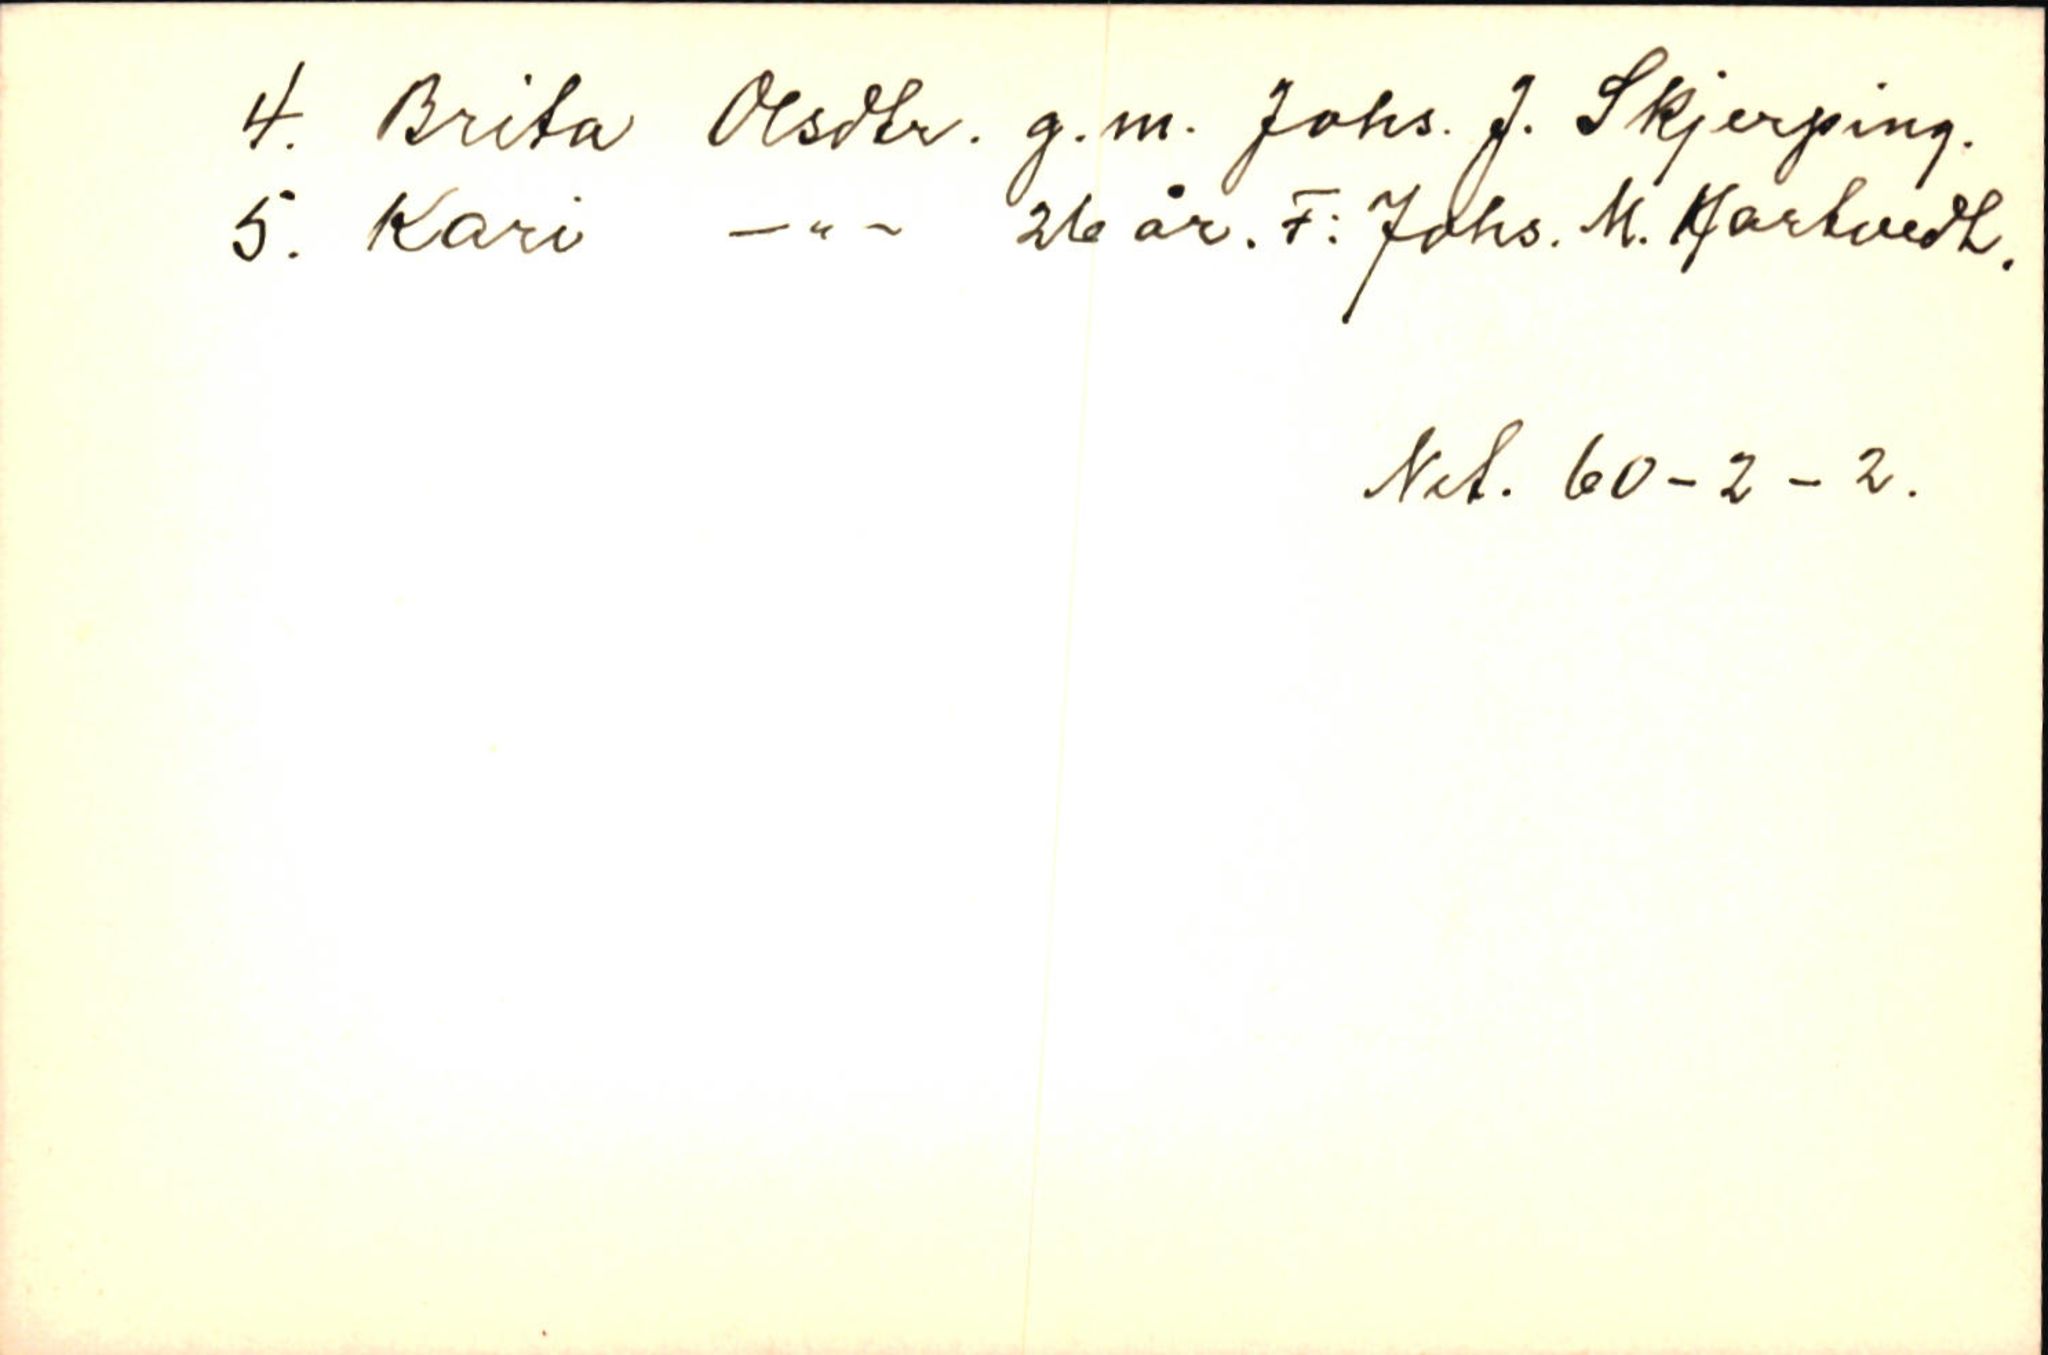 4. Brita Olsdtr. g.m. Johs. J. Skjerping.
5. Kari —"— 26 år. F: Johs. M. Hjartvedt.
Net. 60-2-2.